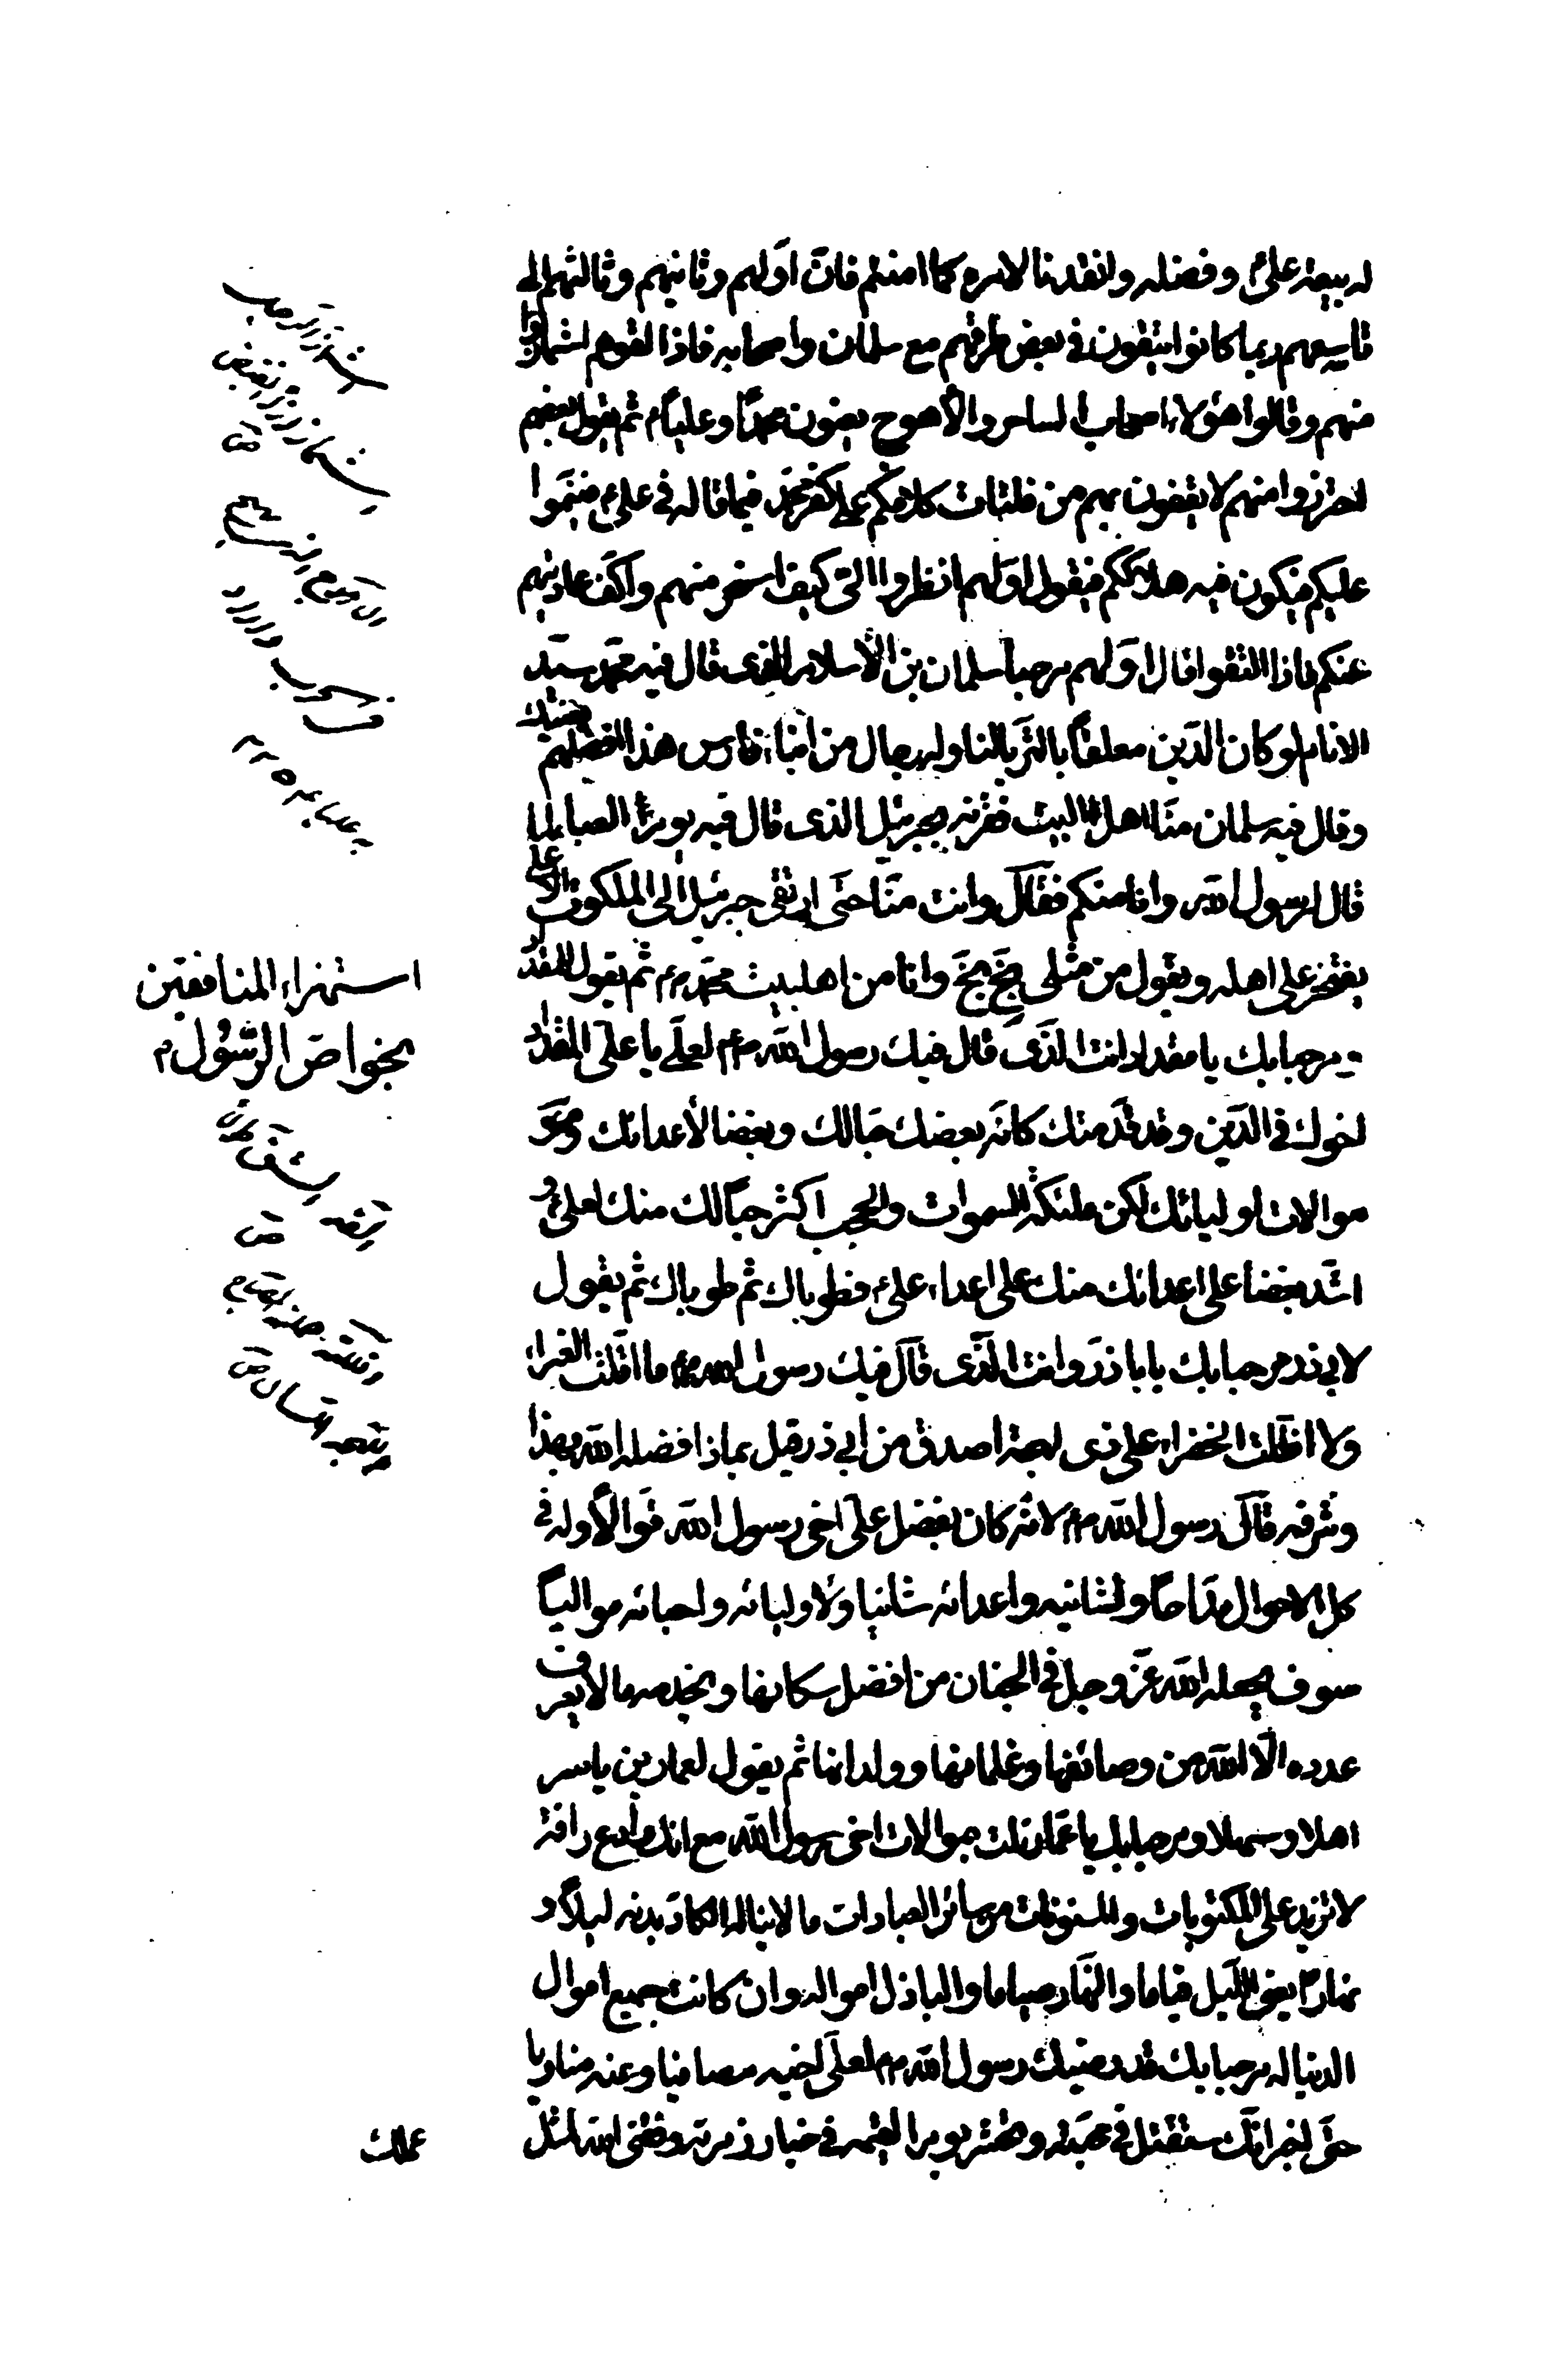 له بيعة علي وفضله وانقدنا لامره كما امنتم فان اولهم وثانيهم وثالثهم الى
تاسعهم ربما كانوا يلتقون في بعض طرقهم مع سلمان واصحابه فاذا لقوهم اشمأزوا
منهم وقالوا هؤلاء اصحاب الساحر والأهوج يعنون محمدا وعليا م ثم يقول بعضهم
احترزوا منهم لا يقفون بهم من فلتات كلامكم على كفر محمد فيما قاله في علي ع فينموا
عليكم فيكون فيه هلاككم فيقول اولهم انظروا الي كيف اسخر منهم واكف عاديتهم
عنكم فاذا التقوا قال اولهم مرحبا سلمان بن الأسلام الذي قال فيه محمد سيد
الانام لو كان الدين معلقا بالثريا لتناوله رجال من ابناء فارس هذا افضلهم يعنيك
وقال فيه سلمان منا اهل البيت فقرنه بجبرئيل الذي قال فيه يوم العبا لما
قال لرسول الله وانا منكم فقال وانت منا حتى ارتقى جبرئيل الى الملكوت الاعلى
يفتخر على اهله ويقول من مثلي بخ بخ وانا من اهلبيت محمد ص ثم يقول للمقداد
مرحبا بك يا مقداد انت الذي قال فيك رسول الله ص لعلي يا علي المقداد
اخوك في الدين وقد قد منك كانه بعضك حبا لك وبغضا لأعدائك و
موالات لاوليائك لكن ملئكة السموات والحجب اكثر حبا لك منك لعلي و
اشد بغضا على اعدائك منك على اعداء علي ع فطوباك ثم طوباك ثم يقول
لابي ذر مرحبا بك يا باذر وانت الذي قال فيك رسول الله ص ما اقلت الغبراء
ولا اظلت الخضراء على ذي لهجة اصدق من ابي ذر قيل بماذا فضله الله بهذا
وشرفه قال رسول الله ص لانه كان بفضل علي اخي رسول الله قوالا وله في
كل الاحوال مداحا ولشانيه واعدائه شانيا ولأوليائه واحبائه مواليا
سوف يجعله الله عز وجل في الجنان من افضل سكانها ويخدمه ما لا يعرف
عدده الا الله من وصائفها وغلمانها وولدانها ثم يقول لعمار بن ياسر
اهلا وسهلا ومرحبا بك يا عمار نلت بموالات اخي رسول الله مع انك وادع رافه
لا تزيد على المكتوبات والمسنونات من سائر العبادات ما لا يناله الكاد بدنه ليلا و
نهارا يعني الليل قياما والنهار صياما والباذل امواله وان كانت جميع اموال
الدنيا له مرحبا بك قد رضيك رسول الله ص لعلي اخيه مصافيا وعنه مناويا
حتى اخبر انك ستقتل في محبته وتحشر يوم القيمة في خيار زمرته وفقني الله لمثل
عملك
استهزاء المنافقين
بخواص الرسول م